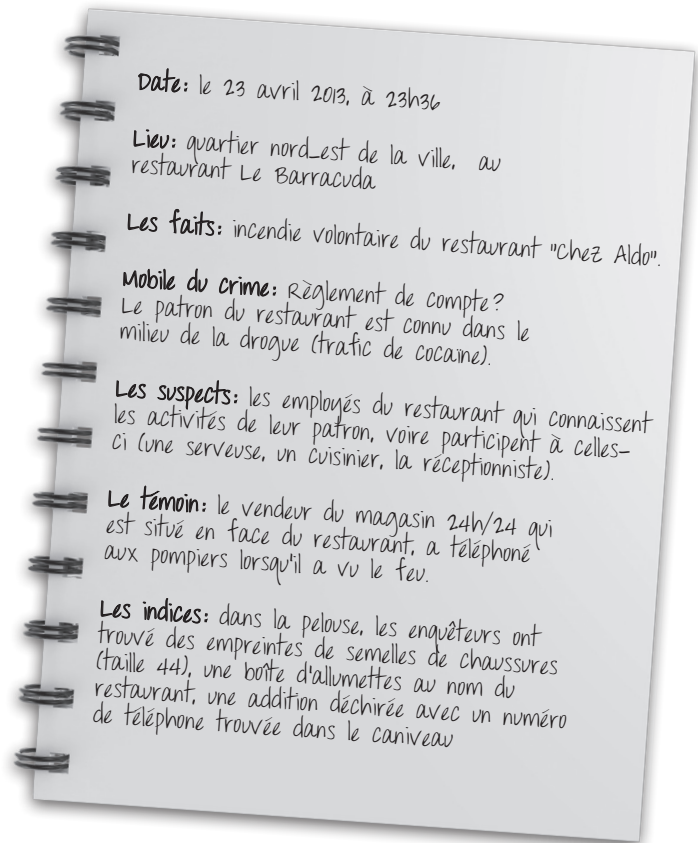 Date: le 23 avril 2013, à 23h36
Lieu: quartier nord_est de la ville, au
restaurant Le Barracuda
Les faits: incendie volontaire du restaurant "Chez Aldo".
Mobile du crime: Règlement de compte?
Le patron du restaurant est connu dans le
milieu de la drogue (trafic de cocaïne).
Les suspects: les employés du restaurant qui connaissent
les activités de leur patron, voire participent à celles-
ci (une serveuse, un cuisinier, la réceptionniste).
Le témoin: le vendeur du magasin 24h/24 qui
est situé en face du restaurant, a téléphoné
aux pompiers lorsqu'il a vu le feu.
Les indices: dans la pelouse, les enquêteurs ont
trouvé des empreintes de semelles de chaussures
(taille 44), une boîte d'allumettes au nom du
restaurant, une addition déchirée avec un numéro
de téléphone trouvée dans le caniveau